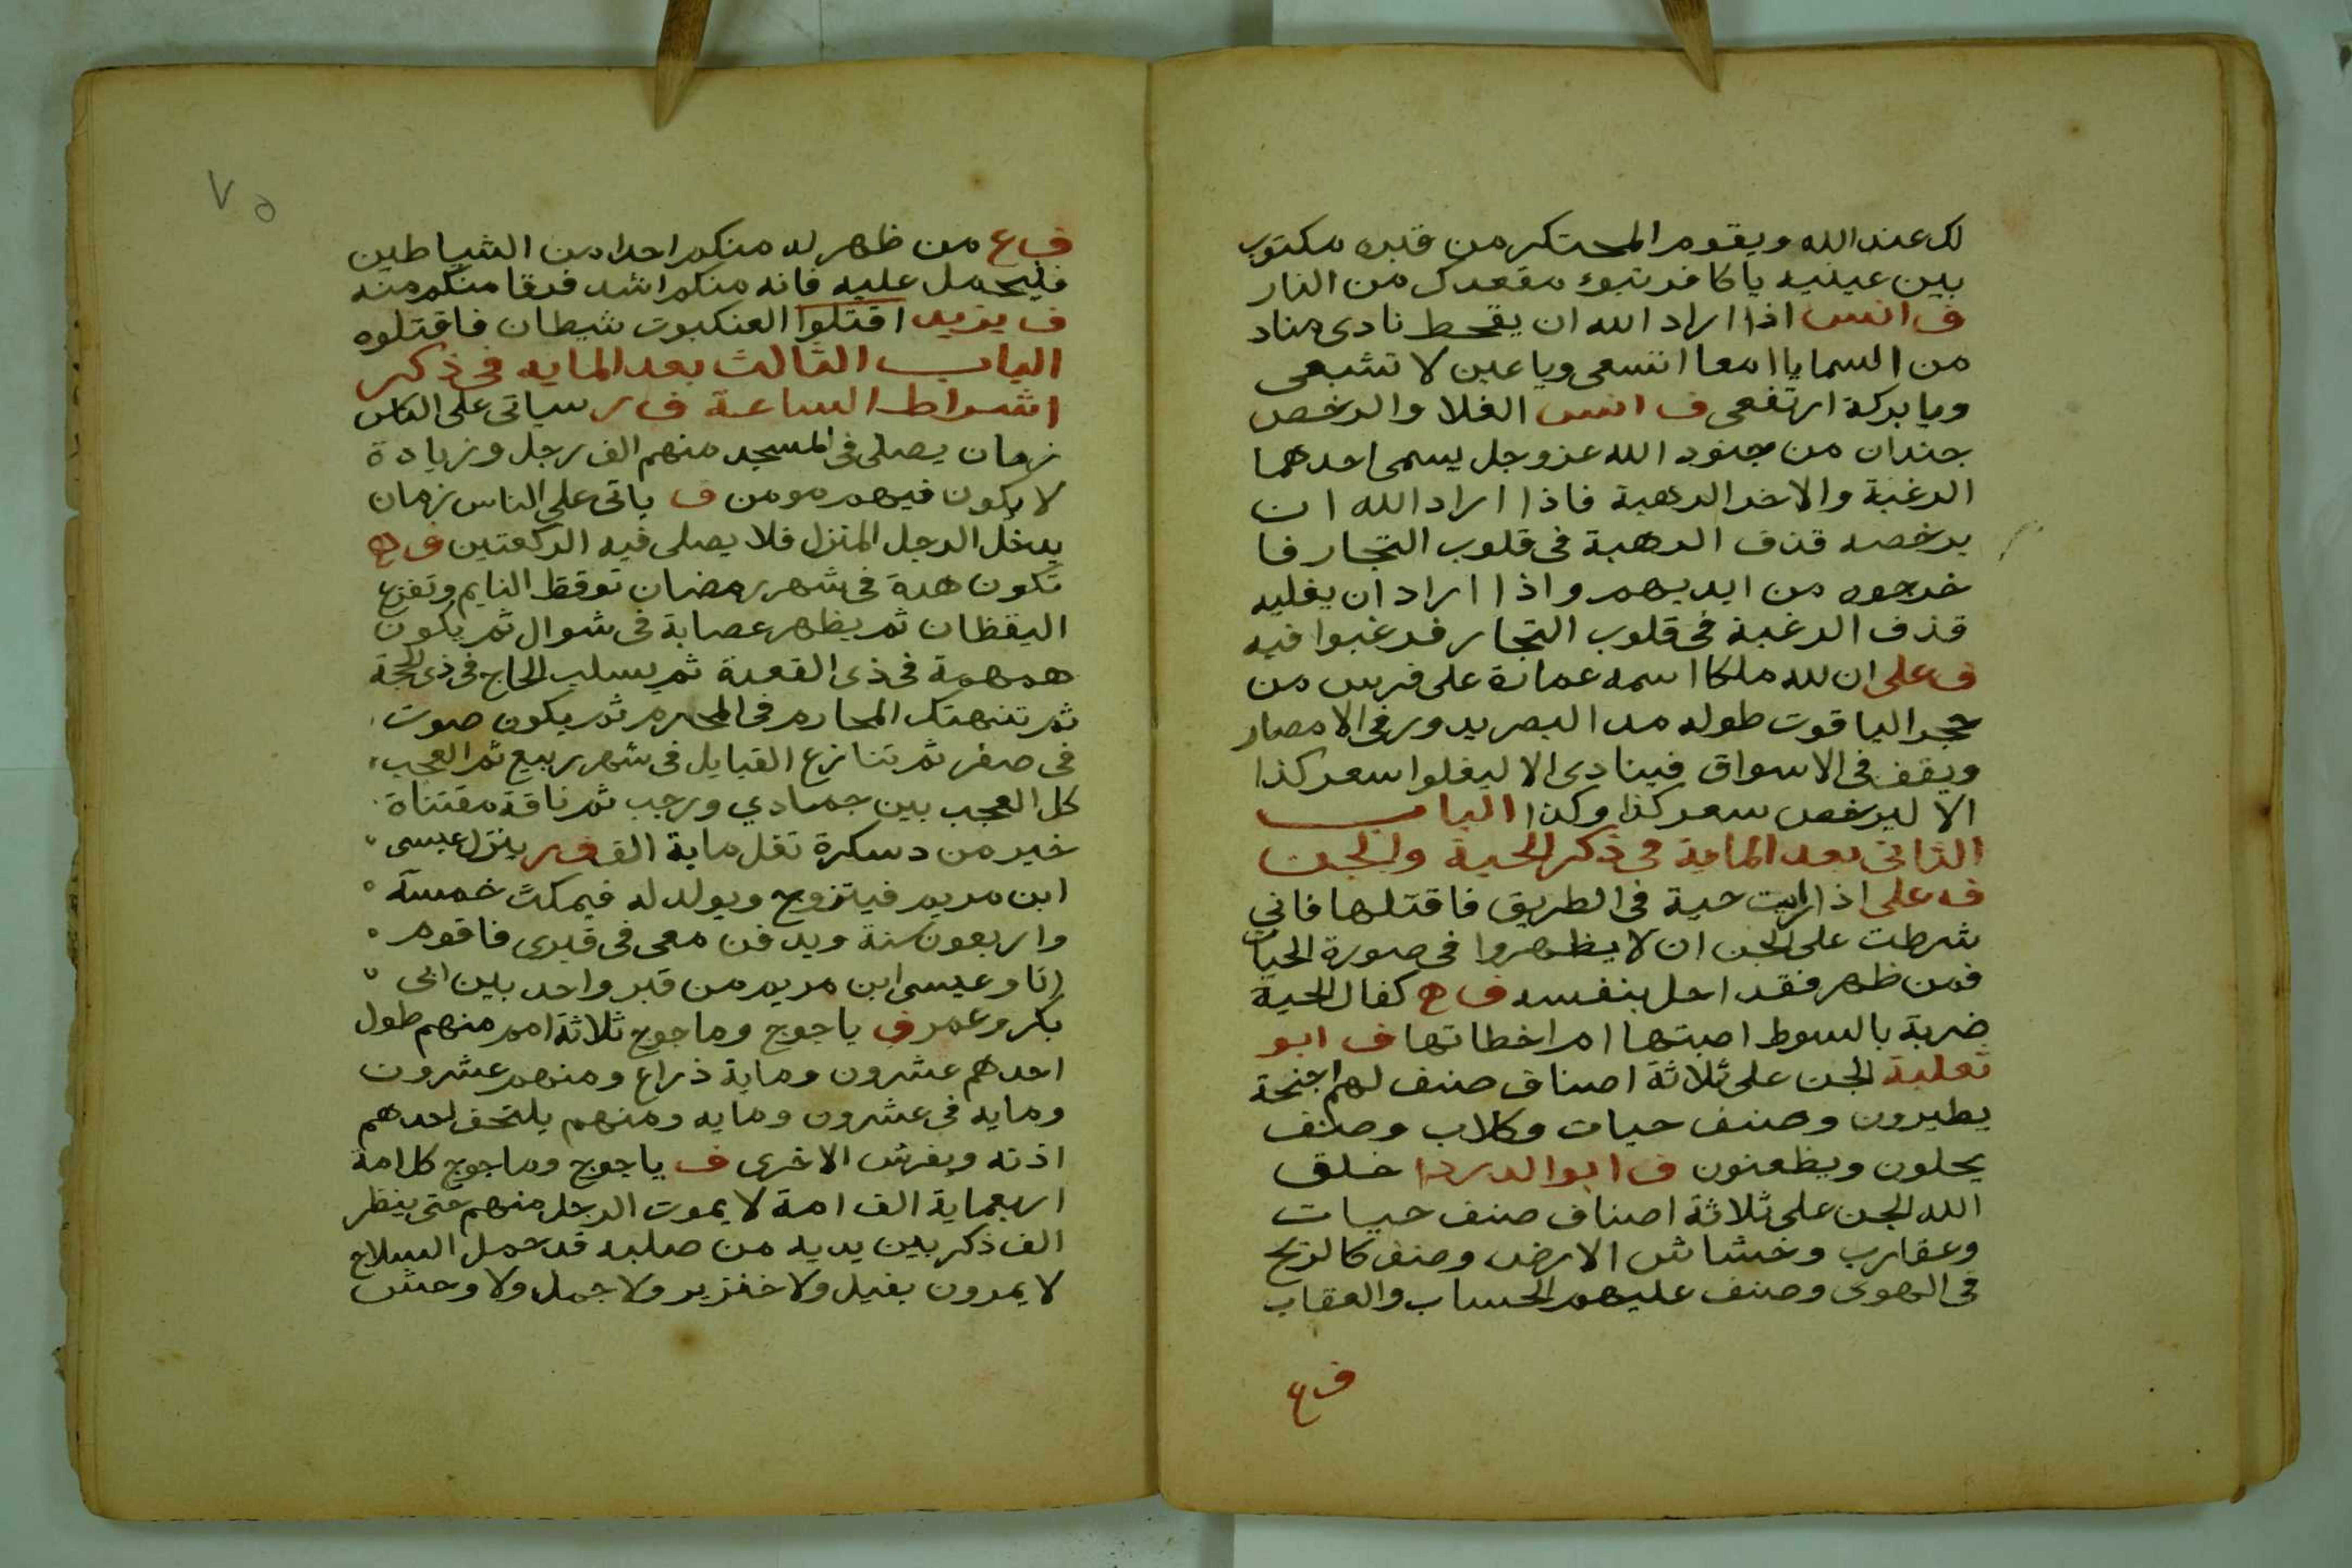 لك عند الله ويقوم المحتكر من قبره مكتوب
بين عينيه يا كافر تبوء مقعدك من النار
ف انس اذا اراد الله ان يقحط نادى مناد
من السما يا امعا اتسعى ويا عين لا تشبعى
ويا بركة ارتفعى ف انس الغلا والرخص
جندان من جنود الله عز وجل يسمى احدهما
الرغبة والاخر الرهبة فاذا اراد الله ان
يرخصه قذف الرهبة فى قلوب التجار فا
خرجوه من ايديهم واذا اراد ان يغليه
قذف الرغبة فى قلوب التجار فرغبوا فيه
ف على ان لله ملكا اسمه عمارة على فرس من
حجر الياقوت طوله مد البصر يدور فى الامصار
ويقف فى الاسواق فينادى الا ليغلوا سعر كذا
الا ليرخص سعر كذا وكذا الباب
الثانى بعد الماية فى ذكر الحية والجن
ف على اذا رايت حية فى الطريق فاقتلها فاني
شرطت على الجن ان لا يظهروا فى صورة الحيات
فمن ظهر فقد احل بنفسه ف ه كفال الحية
ضربة بالسوط اصبتها ام اخطاتها ف ابو
ثعلبة الجن على ثلاثة اصناف صنف لهم اجنحة
يطيرون وصنف حيات وكلاب وصنف
يحلون ويظعنون ف ابوا الدردا خلق
الله الجن على ثلاثة اصناف صنف حيات
وعقارب وخشاش الارض وصنف كالريح
فى الهوى وصنف عليهم الحساب والعقاب
ف ع
٧٥
ف ع من ظهر له منكم احدا من الشياطين
فليحمل عليه فانه منكم اشد فرقا منكم منه
ف يزيد اقتلوا العنكبوت شيطان فاقتلوه
الباب الثالث بعد المايه فى ذكر
اشراط الساعة ف ر سياتى على الناس
زمان يصلى فى المسجد منهم الف رجل وزيادة
لا يكون فيهم مومن ف ياتى على الناس زمان
يدخل الرجل المنزل فلا يصلى فيه الركعتين ف ه
تكون هدة فى شهر رمضان توقظ النايم وتفزع
اليقظان ثم يظهر عصابة فى شوال ثم يكون
همهمة فى ذى القعدة ثم يسلب الحاج فى ذى الحجة
ثم تنهتك المحارم فى المحرم ثم يكون صوت
فى صفر ثم تتنازع القبايل فى شهر ربيع ثم العجب
كل العجب بين جمادي ورجب ثم ناقة مقتناة
خير من دسكرة تقل ماية الف ف ر ينزل عيسى
ابن مريم فيتزوج ويولد له فيمكث خمسة
واربعون سنة ويدفن معى فى قبرى فاقوم
انا وعيسى ابن مريم من قبر واحد بين ابى
بكر وعمر ف ياجوج وماجوج ثلاثة امم منهم طول
احدهم عشرون وماية ذراع ومنهم عشرون
ومايه فى عشرون ومايه ومنهم يلتحف احدهم
اذنه ويفرش الاخرى ف ياجوج وماجوج كل امة
اربعماية الف امة لا يموت الرجل منهم حتى ينظر
الف ذكر بين يديه من صلبه قد حمل السلاح
لا يمرون بفيل ولا خنزير ولا جمل ولا وحش